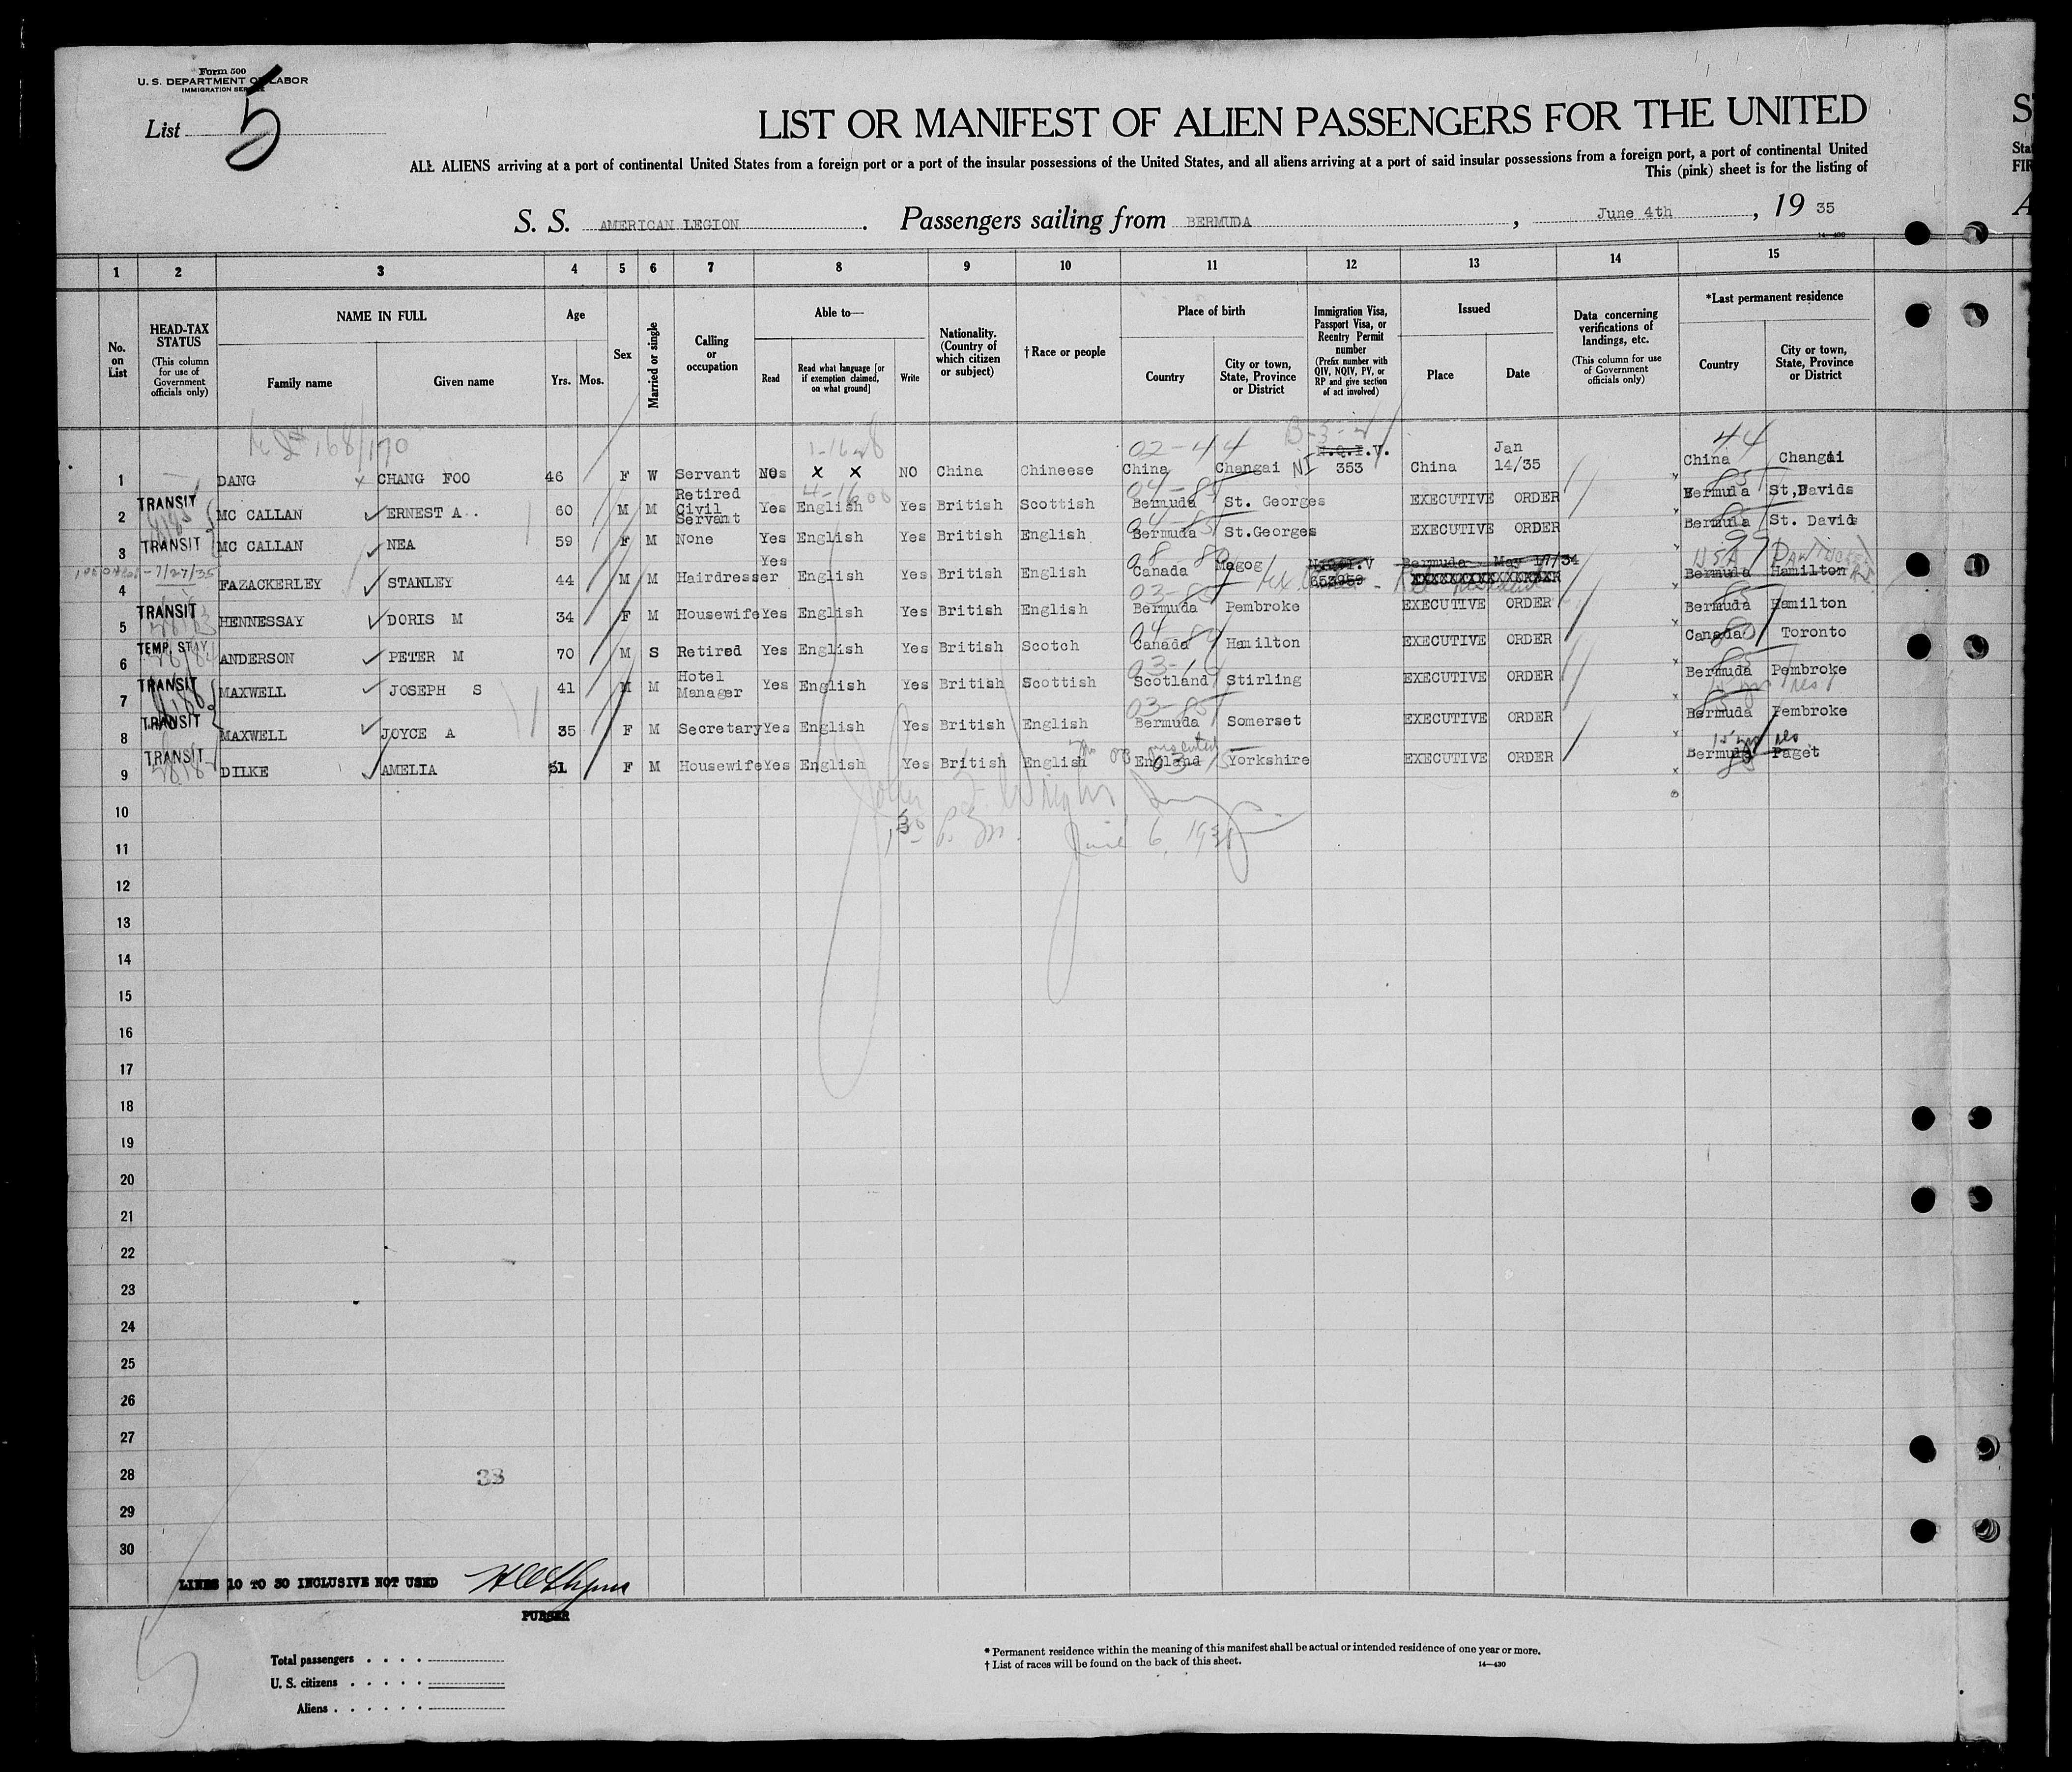 Form 500
U. S. DEPARTMENT OF LABOR
IMMIGRATION SERVICE
List 5
LIST OR MANIFEST OF ALIEN PASSENGERS FOR THE UNITED
ALL ALIENS arriving at a port of continental United States from a foreign port or a port of the insular possessions of the United States, and all aliens arriving at a port of said insular possessions from a foreign port, a port of continental United
This (pink) sheet is for the listing of
S. S. AMERICAN LEGION. Passengers sailing from BERMUDA, June 4th, 19 35
1 2 3 4 5 6 7 8 9 10 11 12 13 14 15
No. on List
HEAD-TAX STATUS
(This column for use of Government officials only)
NAME IN FULL
Family name
Given name
Age
Yrs. Mos.
Sex
Married or single
Calling or occupation
Able to—
Read
Read what language [or if exemption claimed, on what ground]
Write
Nationality. (Country of which citizen or subject)
†Race or people
Place of birth
Country
City or town, State, Province or District
Immigration Visa, Passport Visa, or Reentry Permit number
(Prefix number with QIV, NQIV, PV, or RP and give section of act involved)
Issued
Place
Date
Data concerning verifications of landings, etc.
(This column for use of Government officials only)
*Last permanent residence
Country
City or town, State, Province or District
168/170 02-44 44
1 DANG CHANG FOO 46 F W Servant NO X X NO China Chineese China Changai NI 353 China Jan 14/35 China Changai
2 TRANSIT MC CALLAN ERNEST A. 60 M M Retired Civil Servant Yes English Yes British Scottish Bermuda St. Georges EXECUTIVE ORDER Bermuda St, Davids
3 TRANSIT MC CALLAN NEA 59 F M None Yes English Yes British English Bermuda St.Georges EXECUTIVE ORDER Bermula St. Davids
4 7/27/35 FAZACKERLEY STANLEY 44 M M Hairdresser Yes English Yes British English Canada Magog 653959 Bermuda May 17/34 Bermuda Hamilton USA
5 TRANSIT HENNESSAY DORIS M 34 F M Housewife Yes English Yes British English Bermuda Pembroke EXECUTIVE ORDER Bermuda Hamilton
6 TEMP. STAY ANDERSON PETER M 70 M S Retired Yes English Yes British Scotch Canada Hamilton EXECUTIVE ORDER Canada Toronto
7 TRANSIT MAXWELL JOSEPH S 41 M M Hotel Manager Yes English Yes British Scottish Scotland Stirling EXECUTIVE ORDER Bermuda Pembroke
8 TRANSIT MAXWELL JOYCE A 35 F M Secretary Yes English Yes British English Bermuda Somerset EXECUTIVE ORDER Bermuda Pembroke
9 TRANSIT DILKE AMELIA 51 F M Housewife Yes English Yes British English England Yorkshire EXECUTIVE ORDER Bermuda Paget
10
11
12
13
14
15
16
17
18
19
20
21
22
23
24
25
26
27
28
29
30
33
LINES 10 TO 30 INCLUSIVE NOT USED
PURSER
Total passengers
U. S. citizens
Aliens
* Permanent residence within the meaning of this manifest shall be actual or intended residence of one year or more.
† List of races will be found on the back of this sheet.
14—430